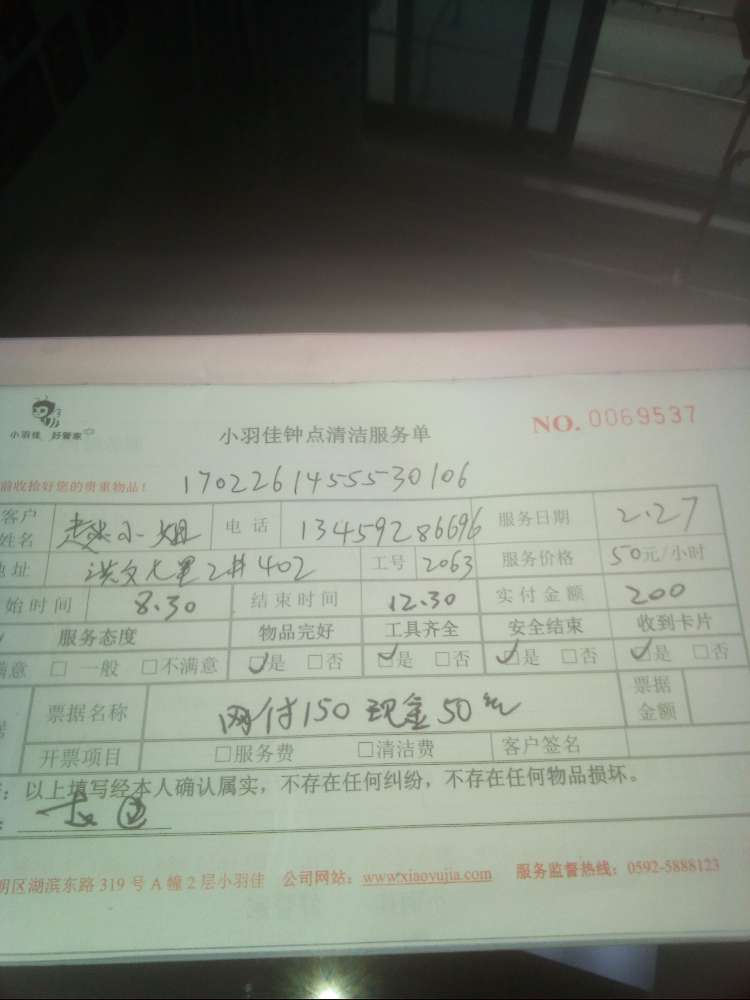 小羽佳 好管家
小羽佳钟点清洁服务单
NO. 0069537
前收拾好您的贵重物品!
17022614555530106
客户姓名 赵小姐 电话 13459286696 服务日期 2.27
地址 洪文七里2# 402 工号 2063 服务价格 50元/小时
始时间 8.30 结束时间 12.30 实付金额 200
服务态度 物品完好 工具齐全 安全结束 收到卡片
满意 □ 一般 □不满意 ☑是 □否 ☑是 □否 ☑是 □否 ☑是 □否
票据名称 网付150 现金50元 票据金额
开票项目 □服务费 □清洁费 客户签名
:以上填写经本人确认属实,不存在任何纠纷,不存在任何物品损坏。
明区湖滨东路 319 号 A 幢 2 层小羽佳 公司网站:www.xiaoyujia.com 服务监督热线:0592-5888123